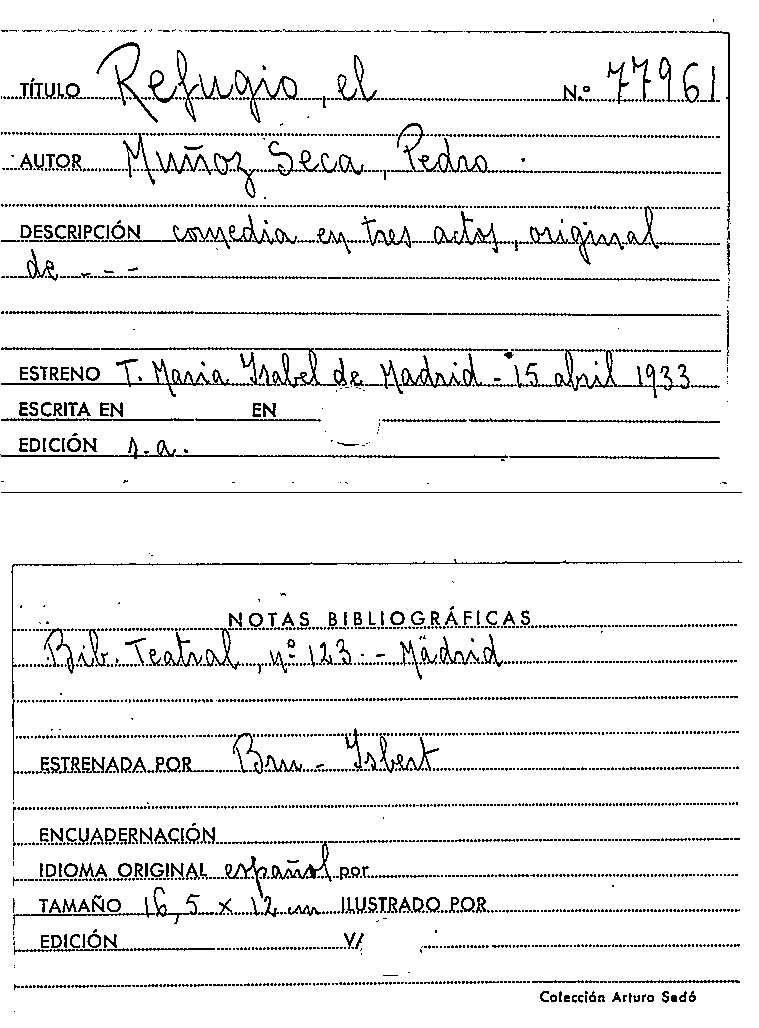 TÍTULO Refugio, el N.º 77961
AUTOR Muñoz Seca, Pedro.
DESCRIPCIÓN comedia en tres actos, original
de - - -
ESTRENO T. Maria Ysabel de Madrid - 15 abril 1933
ESCRITA EN EN
EDICIÓN s.a.
NOTAS BIBLIOGRÁFICAS
Bib. Teatral, nº 123 - Madrid
ESTRENADA POR Bru - Ysbert
ENCUADERNACIÓN
IDIOMA ORIGINAL español por
TAMAÑO 16,5 x 12 cm ILUSTRADO POR
EDICIÓN V/
Colección Arturo Sedó